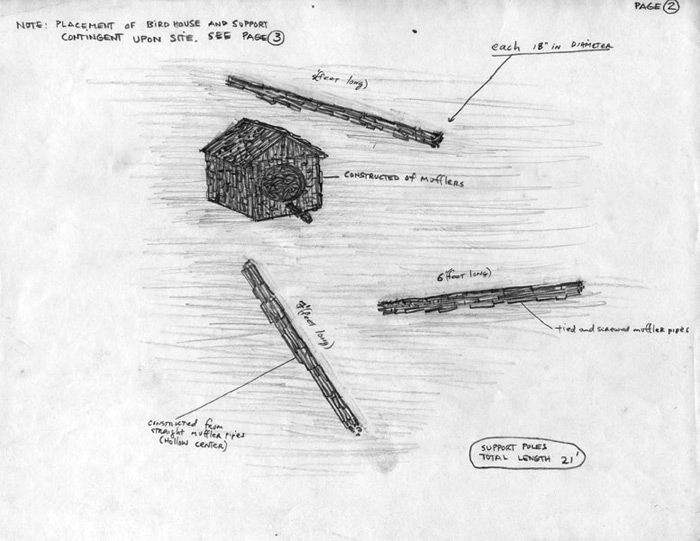 PAGE (2)
NOTE: PLACEMENT OF BIRD HOUSE AND SUPPORT
CONTINGENT UPON SITE. SEE PAGE (3)
each 18" IN DIAMETER
(feet long)
CONSTRUCTED of MUFFLERS
6 (feet long)
(feet long)
tied and screwed muffler pipes
CONSTRUCTED from
STRAIGHT muffler pipes
(HOLLOW CENTER)
SUPPORT POLES
TOTAL LENGTH 21'